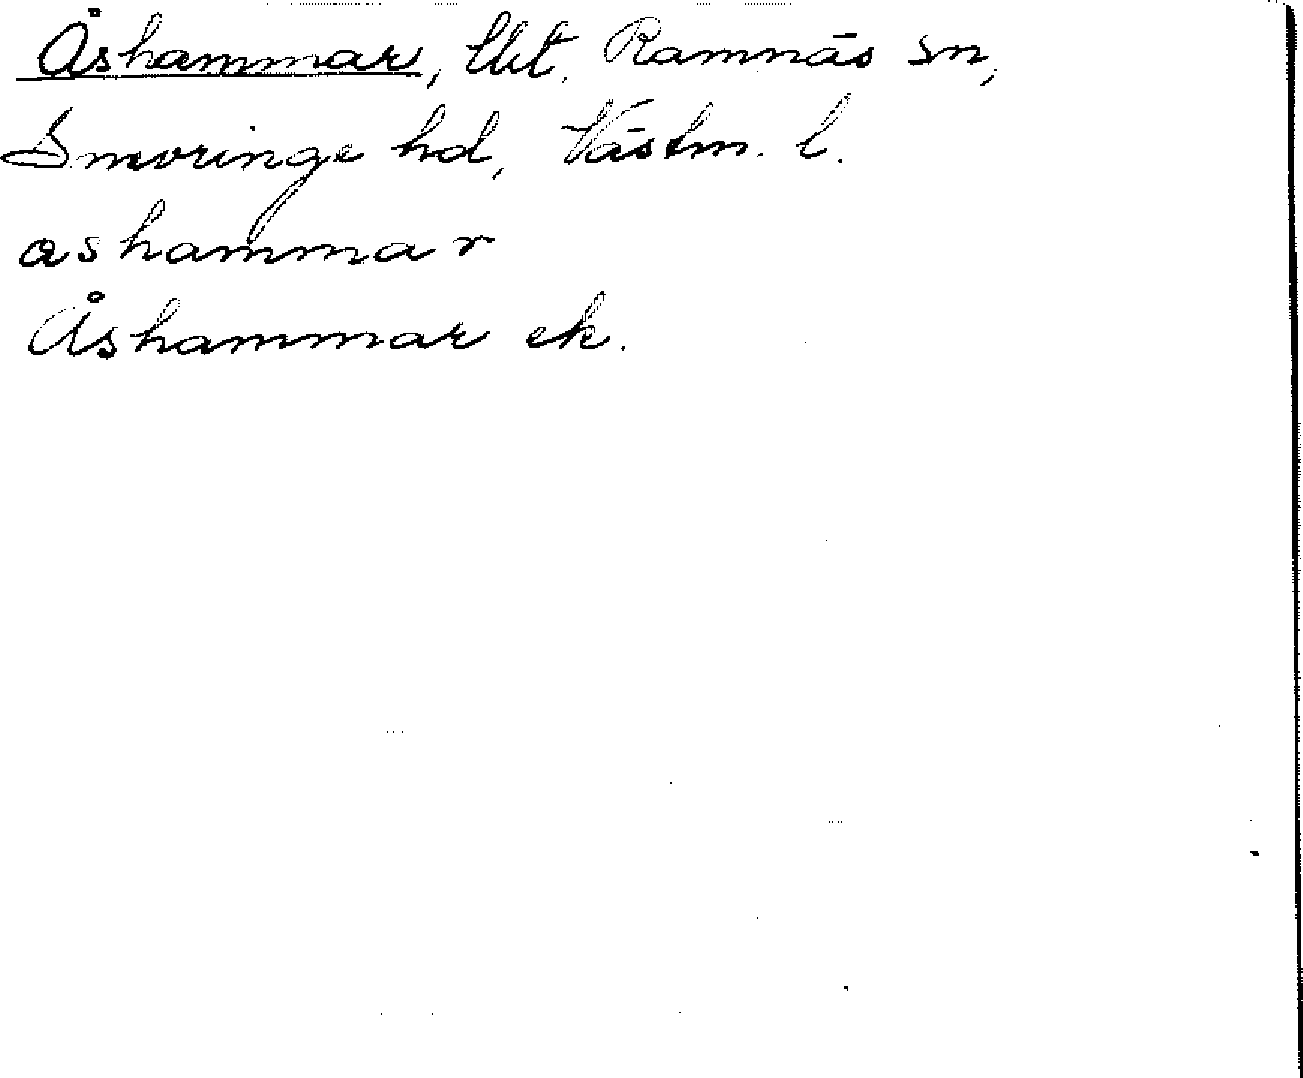 Åshammar, lht. Ramnäs sn,
Snevringe hd, Västm. l.
ashammar
Åshammar ek.